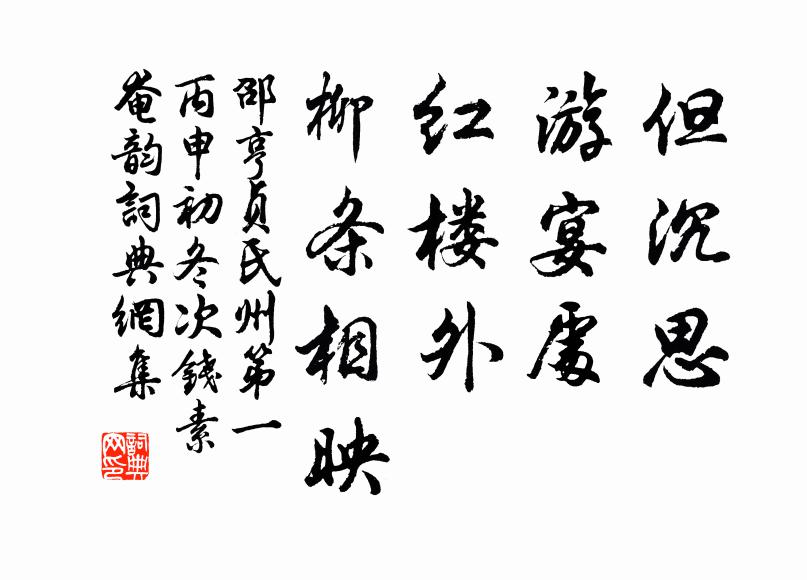 但沉思
游宴處
红楼外
柳条相映
邵亨貞氏州第一
丙申初冬次錢素
菴韵詞典網集
詞典網印